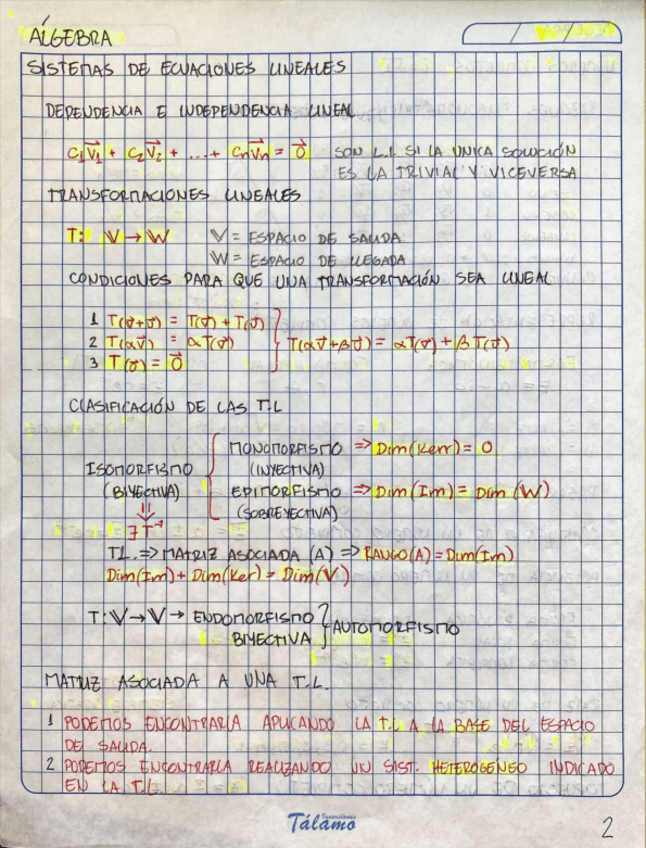 ÁLGEBRA
SISTEMAS DE ECUACIONES LINEALES
DEPENDENCIA E INDEPENDENCIA LINEAL
C₁V⃗₁ + C₂V⃗₂ + ... + CₙV⃗ₙ = 0⃗ SON L.I. SI LA UNICA SOLUCIÓN
ES LA TRIVIAL Y VICEVERSA
TRANSFORMACIONES LINEALES
T: V → W V = ESPACIO DE SALIDA
W = ESPACIO DE LLEGADA
CONDICIONES PARA QUE UNA TRANSFORMACIÓN SEA LINEAL
1 T(v⃗+v⃗) = T(v⃗) + T(v⃗)
2 T(αv⃗) = αT(v⃗) } T(αv⃗+βv⃗) = αT(v⃗) + βT(v⃗)
3 T(0⃗) = 0⃗
CLASIFICACIÓN DE LAS T.L
ISOMORFISMO { MONOMORFISMO => Dim(Kerr) = 0
(BIYECTIVA) (INYECTIVA)
EPIMORFISMO => Dim(Im) = Dim(W)
(SOBREYECTIVA)
⇓
∃ T⁻¹
T.L. => MATRIZ ASOCIADA (A) => RANGO(A) = Dim(Im)
Dim(Im) + Dim(Ker) = Dim(V)
T: V → V → ENDOMORFISMO } AUTOMORFISMO
BIYECTIVA
MATRIZ ASOCIADA A UNA T.L.
1 PODEMOS ENCONTRARLA APLICANDO LA T.L A LA BASE DEL ESPACIO
DE SALIDA.
2 PODEMOS ENCONTRARLA REALIZANDO UN SIST. HETEROGENEO INDICADO
EN LA T.L.
Inversiones
Tálamo
2